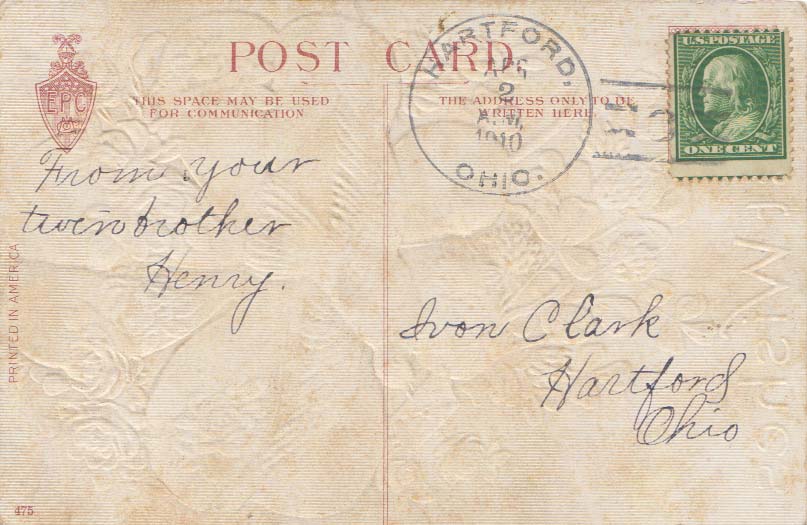 POST CARD
EPC
THIS SPACE MAY BE USED
FOR COMMUNICATION
THE ADDRESS ONLY TO BE
WRITTEN HERE
HARTFORD.
APR
2
A.M.
1910
OHIO.
U.S. POSTAGE
ONE CENT
From your
twin brother
Henry.
Ivon Clark
Hartford
Ohio
PRINTED IN AMERICA
475